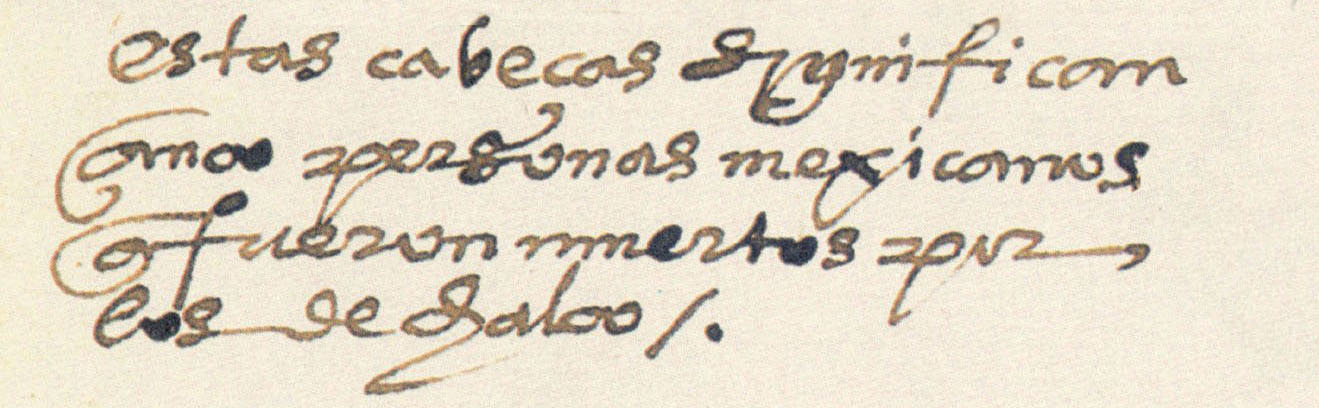 estas cabecas significan
cinco personas mexicanos
q fueron muertos por
los de chalco /.